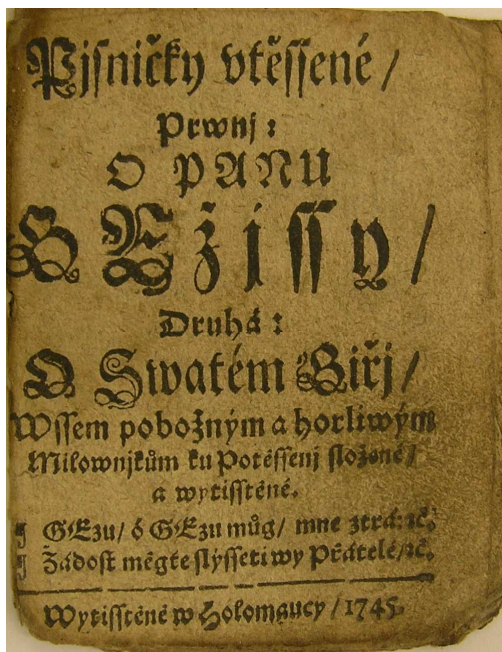 Pjſničky vtěſſené /
Prwnj :
O PANU
GEžiſſy /
Druhá :
O Swatém Giřj /
Wſſem pobožným a horliwým
Milownjkům ku Potěſſenj ſložené /
a wytiſſtěné.
¶ GEzu / ó GEzu můg / mne ztrá: ꝛč.
¶ Žádoſt mègte ſlyſſeti wy Přátelé / ꝛč.
Wytiſſtěné w Holomaucy / 1745.